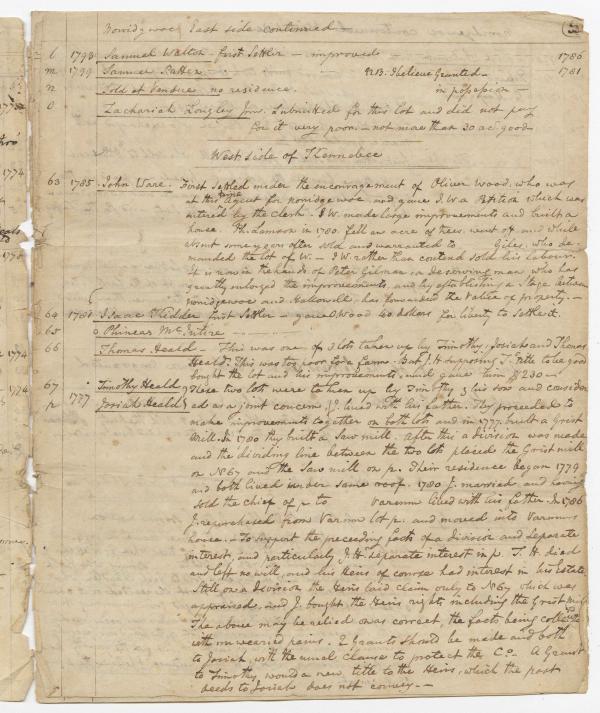 Norridgwoc East side continued
l 1793 Samuel Walton - first Settler - improved 1786
m 1799 Samuel 4213. I believe Granted - 1781
n Sold at Vendue no residence. in possession -
o Zachariah Longley Jnr. Submitted for this lot and did not pay
for it very poor - not more than 30 ac. good
West side of Kennebec
63 1785. John Ware. First settled under the encouragement of Oliver Wood, who was
at this time agent for norridgewoc and gave J. W a Petition which was
entered by the clerk. J W. made large improvements and built a
house. Ph. Lamson in 1780. fell an acre of trees, went off and while
absent some years after sold and warranted to Giles, who de-
manded the lot of W - J W. rather than contend sold his labour.
It is now in the hands of Peter Gilman - a Deserving man, who has
greatly enlarged the improvements, and by establishing a Stage between
norridgewoc and Hallowell, has forwarded the Value of property. -
64 1780 Isaac Kidder first Settler - gave O Wood 40 dollars for liberty to Settle it.
65 Phinehas McIntire
66 Thomas Heald - This was one of 3 lots taken up by Timothy, Josiah and Thomas
Heald. This was too poor for a farm. But J. H supposing T. title to be good
bought the lot and his improvements, and gave him $230 -
67 Timothy Heald These two lots were taken up by Timothy & his son and consider
p 1777 Josiah Heald ed as a joint concern, J. lived with his father. They proceeded to
make improvements together on both lots and in 1777. built a Grist
Mill. In 1780 they built a Saw mill. After this a division was made
and the dividing line between the two lots placed the Grist mill
on No 67 and the Saw mill on p. Their residence began 1779
and both lived under same roof. 1780 J. married, and having
sold the chief of p to Varnum lived with his father. In 1786
J. repurchased from Varnum lot p. and moved into Varnums
house. - To support the preceding facts of a Division and Separate
interest, and particularly J. H. separate interest in p. T. H. died
and left no will, and his Heirs of course had interest in his Estate.
Still on a Division the Heirs laid claim only to No 67 which was
appraised, and J. bought the Heirs rights including the Grist mill
The above may be relied on as correct, the facts being collected
with unwearied pains. 2 Grants should be made and both
to Josiah, with the usual clause to protect the Co. A Grant
to Timothy would a new title to the Heirs, which the past
deeds to Josiah does not convey. -